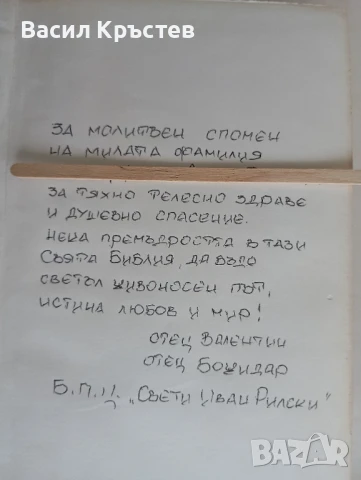 Васил Кръстев
ЗА МОЛИТВЕН СПОМЕН
НА МИЛАТА ФАМИЛИЯ
ЗА ТЯХНО ТЕЛЕСНО ЗДРАВЕ
И ДУШЕВНО СПАСЕНИЕ.
НЕКА ПРЕМЪДРОСТТА В ТАЗИ
СВЯТА БИБЛИЯ, ДА БЪДЕ
СВЕТЪЛ ЖИВОНОСЕН ПЪТ,
ИСТИНА ЛЮБОВ И МИР!
ОТЕЦ ВАЛЕНТИН
ОТЕЦ БОЖИДАР
"СВЕТИ ИВАН РИЛСКИ"
BAZAR